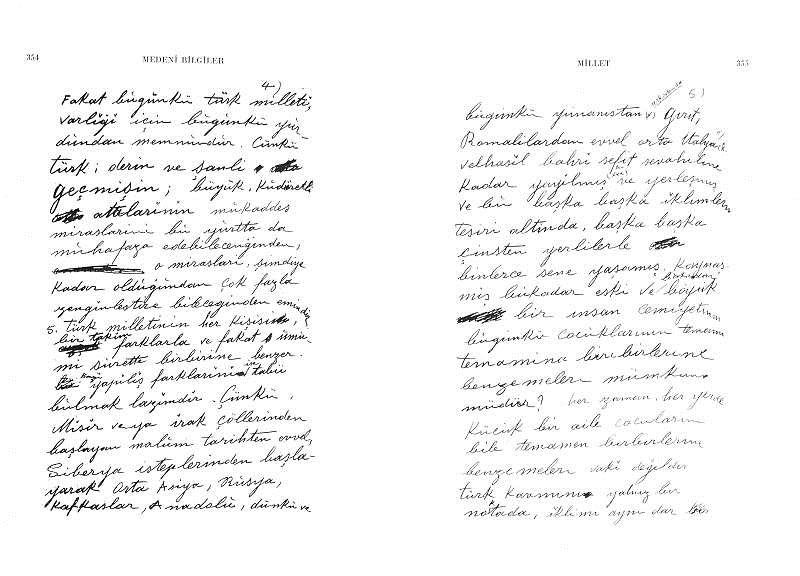 354
MEDENİ BİLGİLER
4)
Fakat bügünkü türk milleti,
varliği için bügünkü yur-
dundan memnundur. Çünkü
türk; derin ve şanli
geçmişin; büyük, kudretli
atalarinin mukaddes
miraslarini bu yurtta da
muhafaza edebileceğinden,
o miraslari, şimdiye
kadar olduğundan çok fazla
zenginleştire bileceğinden emindir.
5. Türk milletinin her kişisi,
bir takim farklarla ve fakat umu-
mi surette birbirine benzer.
yapiliş farklarini tabii
bulmak lazimdir. Çünkü,
Misir veya irak çöllerinden
başlayan malum tarihten evvel,
Siberya isteplerinden başla-
yarak Orta Asiya, Rusya,
Kafkaslar, Anadolu, dünkü ve
MİLLET
355
5)
bügünkü yunanistan Girit,
Romalilardan evvel orta Italya
velhasil bahri sefit sevahiline
kadar yayilmiş ve yerleşmiş
ve bin başka başka iklimlerin
tesiri altinda, başka başka
cinsten yerlilerle
binlerce sene yaşamiş, kaynaş-
miş bukadar eski ve büyük
bir insan cemiyetinin
bügünkü çocuklarinin tamami
temamina biribirlerine
benzemeleri mümkün
müdür? her zaman, her yerde
küçük bir aile çocuklarin
bile temamen birbirlerine
benzemeleri vaki değildir
türk kavminin yalniz bir
noktada, iklimi ayni dar bir